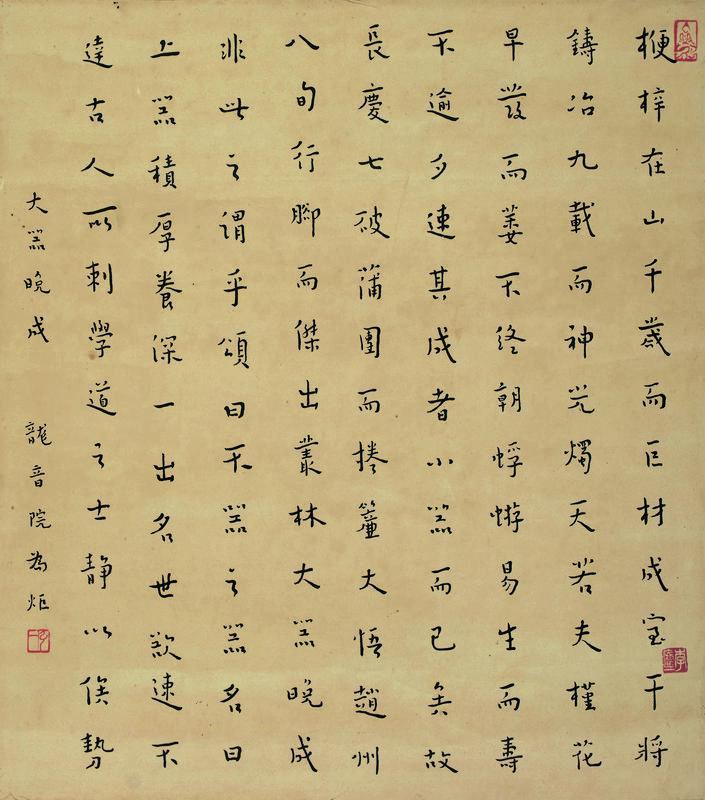 楩梓在山千歲而巨材成室干將
鑄冶九載而神光燭天若夫槿花
早發而萎不終朝蜉蝣易生而壽
不逾夕速其成者小器而已矣故
長慶七破蒲團而捲簾大悟趙州
八旬行腳而傑出叢林大器晚成
非此之謂乎頌曰不器之器名曰
上器積厚養深一出名世欲速不
達古人所刺學道之士靜以俟勢
大器晚成 龍音院為炬